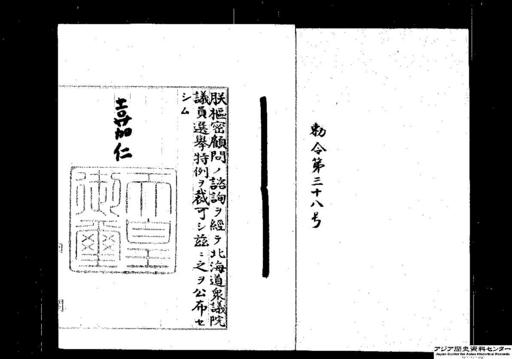 勅令第三十八号
朕枢密顧問ノ諮詢ヲ経テ北海道衆議院
議員選挙特例ヲ裁可シ玆ニ之ヲ公布セ
シム
嘉仁
天皇
御璽
アジア歴史資料センター
Japan Center for Asian Historical Records